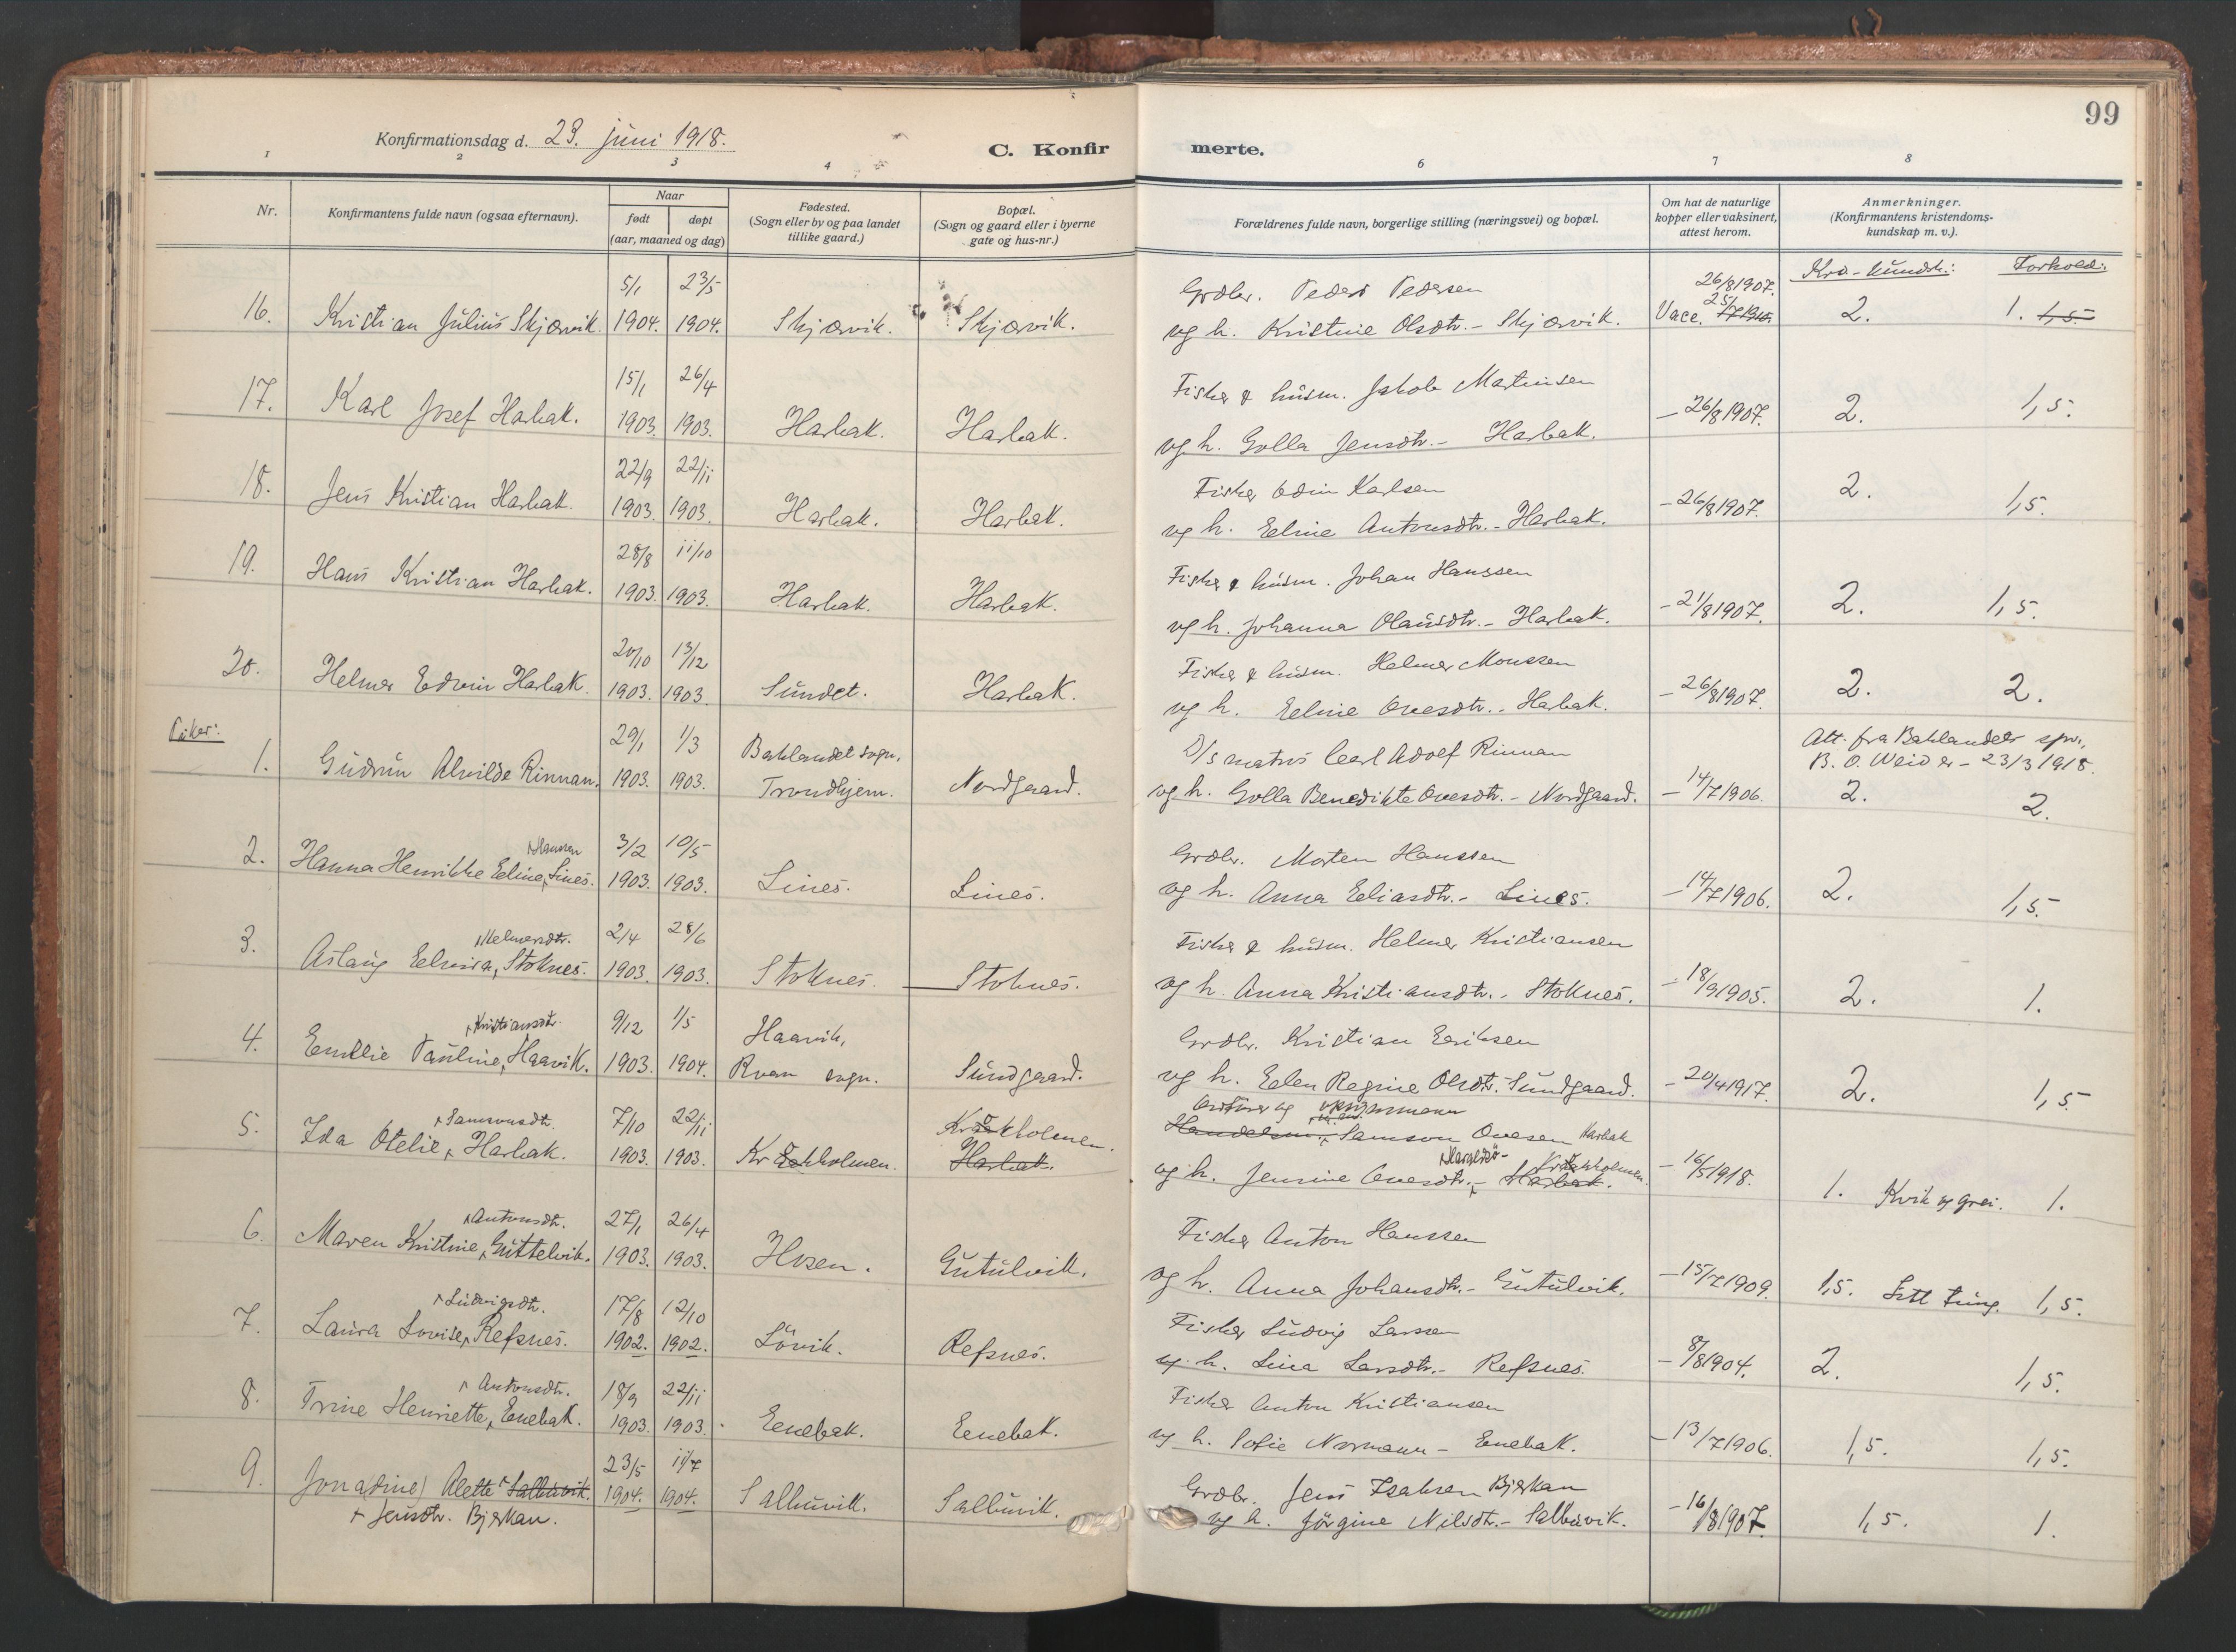 99
Konfirmationsdag d. 23. juni 1918.
C. Konfir merte.
1 2 3 4 6 7 8
Nr.
Konfirmantens fulde navn (ogsaa efternavn).
Naar
født døpt
(aar, maaned og dag)
Fødested.
(Sogn eller by og paa landet
tillike gaard.)
Bopæl.
(Sogn og gaard eller i byerne
gate og hus-nr.)
Forældrenes fulde navn, borgerlige stilling (næringsvei) og bopæl.
Om hat de naturlige
kopper eller vaksinert,
attest herom.
Anmerkninger.
(Konfirmantens kristendoms-
kundskap m. v.).
Krd-kundsk: Forhold:
5/1 23/5 Grdbr. Peder Pedersen 26/8 1907.
16. Kristian Julius Skjærvik. 1904. 1904. Skjærvik. Skjærvik. og h. Kristine Olsdtr. - Skjærvik. Vacc. 2. 1. 1,5
15/1 26/4 Fisker & husm. Jakob Martinsen
17. Karl Josef Harbak. 1903. 1903. Harbak. Harbak. og h. Golla Jensdtr. - Harbak. - 26/8 1907. 2. 1,5.
22/9 22/11 Fisker Edin Karlsen
18. Jens Kristian Harbak. 1903. 1903. Harbak. Harbak. og h. Eline Antonsdtr. - Harbak. - 26/8 1907. 2. 1,5.
28/8 11/10 Fisker & husm. Johan Hanssen
19. Hans Kristian Harbak. 1903. 1903. Harbak. Harbak. og h. Johanna Olausdtr. - Harbak. - 21/8 1907. 2. 1,5.
20/10 13/12 Fisker & husm. Helmer Monssen
20. Helmer Edvin Harbak. 1903. 1903. Sundet. Harbak. og h. Eline Ovesdtr. - Harbak. - 26/8 1907. 2. 2.
Piker:
29/1 1/3 Baklandet sogn, D/s matros Carl Adolf Rinnan Att. fra Baklandets spr.,
B. O. Weider - 23/3 1918.
1. Gudrun Alvilde Rinnan. 1903. 1903. Trondhjem. Nordgaard. og h. Golla Benedikte Ovesdtr. - Nordgaard. - 14/7 1906. 2. 2.
Hansen 3/2 10/5 Grdbr. Morten Hanssen
2. Hanna Henrikke Eline Lines. 1903. 1903. Lines. Lines. og h. Anna Eliasdtr. - Lines. - 14/7 1906. 2. 1,5.
Helmersdtr. 2/4 28/6 Fisker & husm. Helmer Kristiansen
3. Aslaug Elvira, Stoknes. 1903. 1903. Stoknes. Stoknes. og h. Anna Kristiansdtr. - Stoknes. - 18/9 1905. 2. 1.
Kristiansdtr. 9/12 1/5 Haavik, Grdbr. Kristian Eriksen
4. Emelie Pauline, Haavik. 1903. 1904. Roan sogn. Sundgaard. og h. Elen Regine Olsdtr. - Sundgaard. - 20/4 1917. 2. 1,5.
Samsonsdtr. 7/10 22/11 Kråkholmen. Handelsm. Samson Ovesen Harbak
5. Ida Otelie, Harbak. 1903. 1903. Kråkholmen. Harbak. og h. Jensine Ovesdtr. - Harbak. Kråkholmen. - 16/5 1918. 1. Kvik og grei. 1.
Antonsdtr. 27/1 26/4 Fisker Anton Hanssen
6. Maren Kristine, Guttelvik. 1903. 1903. Hosen. Gutulvik. og h. Anna Johansdtr. - Gutulvik. - 15/7 1909. 1,5. Litt tung. 1,5.
Ludvigsdtr. 17/8 12/10 Fisker Ludvig Larssen
7. Laura Lovise, Refsnes. 1902. 1902. Lövik. Refsnes. og h. Lina Larsdtr. - Refsnes. - 8/8 1904. 2. 1,5.
Antonsdtr. 18/9 22/11 Fisker Anton Kristiansen
8. Trine Henriette, Enebak. 1903. 1903. Enebak. Enebak. og h. Sofie Normann - Enebak. - 13/7 1906. 1,5. 1,5.
23/5 11/7 Grdbr. Jens Isaksen Bjerkan
9. Jona(sine) Alette Salbuvik. 1904. 1904. Salbuvik. Salbuvik. og h. Jörgine Nilsdtr. - Salbuvik. - 16/8 1907. 1,5. 1.
Jensdtr. Bjerkan.